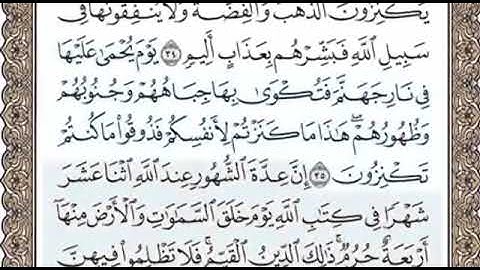 يَكْنِزُونَ ٱلذَّهَبَ وَٱلْفِضَّةَ وَلَا يُنفِقُونَهَا فِى
سَبِيلِ ٱللَّهِ فَبَشِّرْهُم بِعَذَابٍ أَلِيمٍ ٣٤ يَوْمَ يُحْمَىٰ عَلَيْهَا
فِى نَارِ جَهَنَّمَ فَتُكْوَىٰ بِهَا جِبَاهُهُمْ وَجُنُوبُهُمْ
وَظُهُورُهُمْ ۖ هَٰذَا مَا كَنَزْتُمْ لِأَنفُسِكُمْ فَذُوقُوا۟ مَا كُنتُمْ
تَكْنِزُونَ ٣٥ إِنَّ عِدَّةَ ٱلشُّهُورِ عِندَ ٱللَّهِ ٱثْنَا عَشَرَ
شَهْرًا فِى كِتَٰبِ ٱللَّهِ يَوْمَ خَلَقَ ٱلسَّمَٰوَٰتِ وَٱلْأَرْضَ مِنْهَآ
أَرْبَعَةٌ حُرُمٌ ۚ ذَٰلِكَ ٱلدِّينُ ٱلْقَيِّمُ ۚ فَلَا تَظْلِمُوا۟ فِيهِنَّ